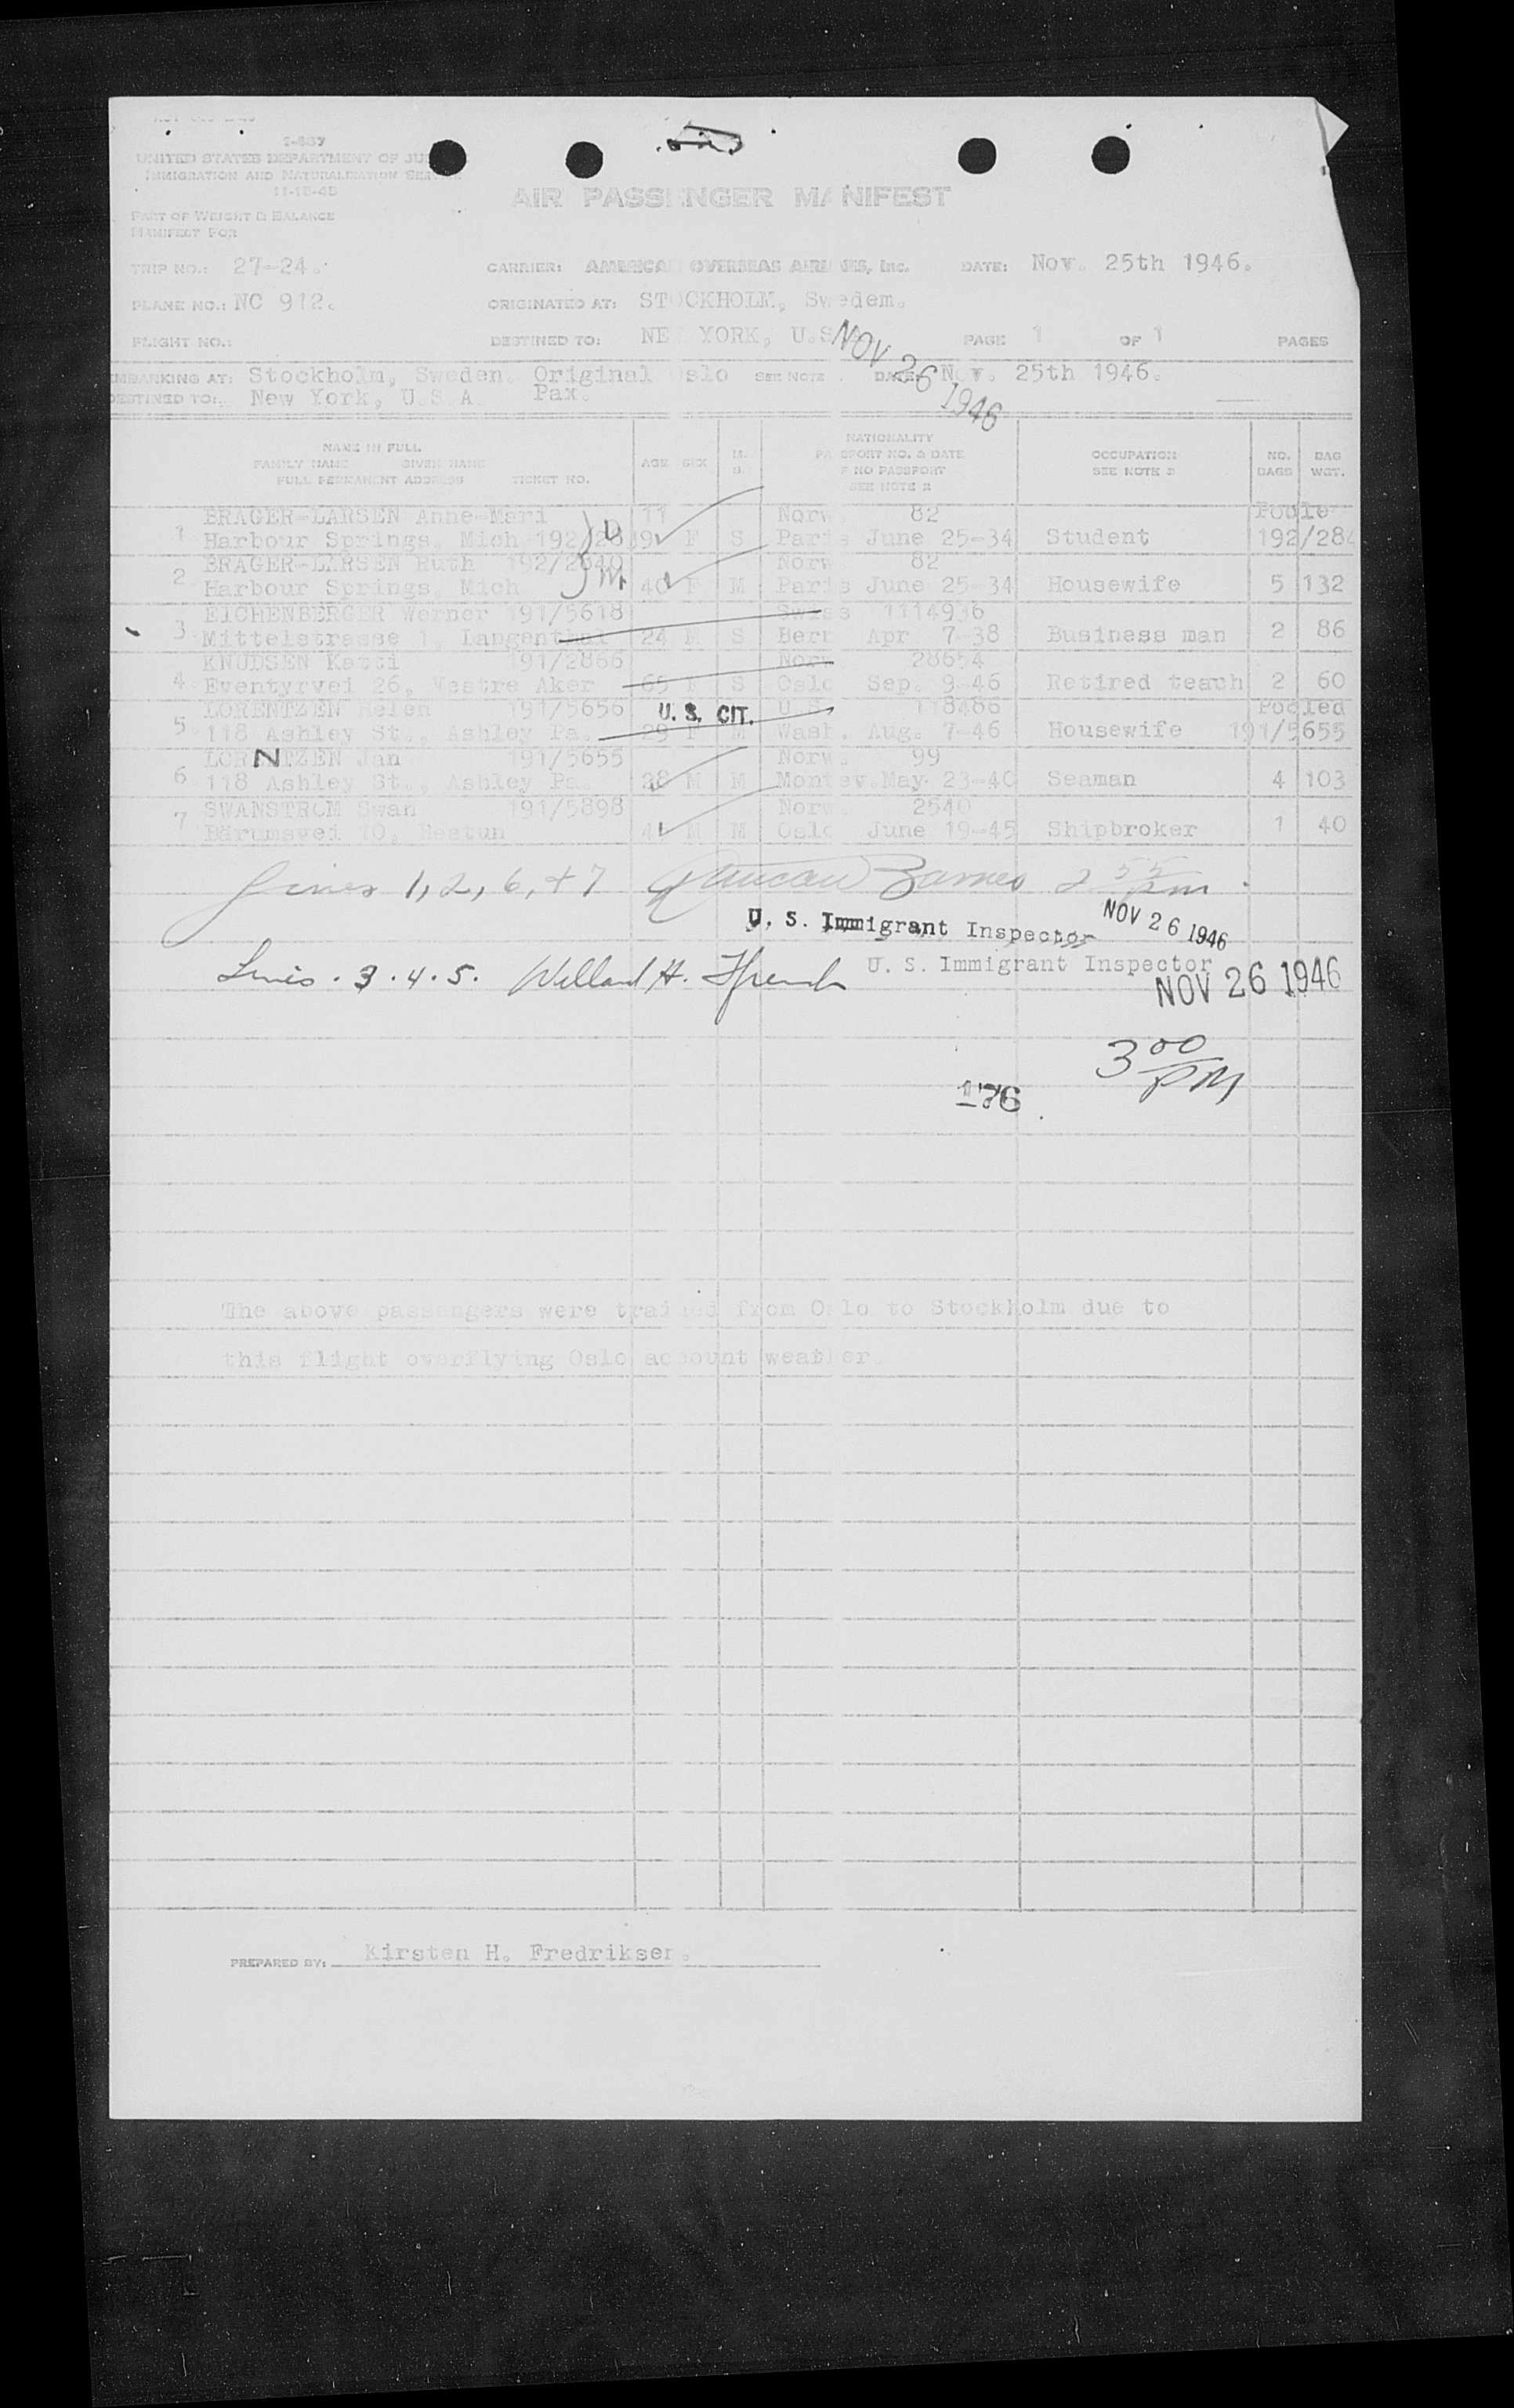 I-887
UNITED STATES DEPARTMENT OF JU
IMMIGRATION AND NATURALIZATION SER
11-15-45
AIR PASS NGER MA NIFEST
PART OF WEIGHT & BALANCE
MANIFEST FOR
TRIP NO.: 27-24. CARRIER: AMERICA OVERSEAS AIRL NES, Inc. DATE: Nov. 25th 1946.
PLANE NO.: NC 912. ORIGINATED AT: ST CKHOLM, Sw edem.
FLIGHT NO.: DESTINED TO: NE YORK, U.S. PAGE 1 OF 1 PAGES
NOV 26 1946
MBARKING AT: Stockholm, Sweden. Original slo SEE NOTE DATE: Nov. 25th 1946.
DESTINED TO: New York, U.S.A. Pax.
NAME IN FULL
FAMILY NAME GIVEN NAME
FULL PERMANENT ADDRESS TICKET NO.
AGE SEX M. S.
NATIONALITY
PA SPORT NO. & DATE
F NO PASSPORT
SEE NOTE 2
OCCUPATION
SEE NOTE 3
NO. BAGS
BAG WGT.
BRAGER-LARSEN Anne-Mari 11 Norw 82 Poole
1 Harbour Springs, Mich 192/2839 F S Paris June 25-34 Student 192/284
BRAGER-LARSEN Ruth 192/2840 Norw 82
2 Harbour Springs, Mich 40 F M Paris June 25-34 Housewife 5 132
EICHENBERGER Werner 191/5618 Swiss 1114936
3 Mittelstrasse 1, Langenthal 24 M S Bern Apr 7-38 Business man 2 86
KNUDSEN Katti 191/2866 Norw 28654
4 Eventyrvei 26, Vestre Aker 65 F S Oslo Sep. 9-46 Retired teach 2 60
LORENTZEN Helen 191/5656 U. S. CIT. U.S. 118486 Pooled
5 118 Ashley St., Ashley Pa. 29 F M Wash. Aug. 7-46 Housewife 191/5655
LORNTZEN Jan 191/5655 Norw. 99
6 118 Ashley St., Ashley Pa. 28 M M Montev. May 23-40 Seaman 4 103
SWANSTROM Swan 191/5898 Norw. 2540
7 Bärumsvei 10, Bestun 41 M M Oslo June 19-45 Shipbroker 1 40
Lines 1, 2, 6, + 7 Duncan Barnes 2 55 pm
U. S. Immigrant Inspector NOV 26 1946
Lines . 3 . 4 . 5. Willard H. French U. S. Immigrant Inspector
NOV 26 1946
3 00 PM
176
The above passengers were trained from Oslo to Stockholm due to
this flight overflying Oslo account weather.
PREPARED BY: Kirsten H. Fredriksen.